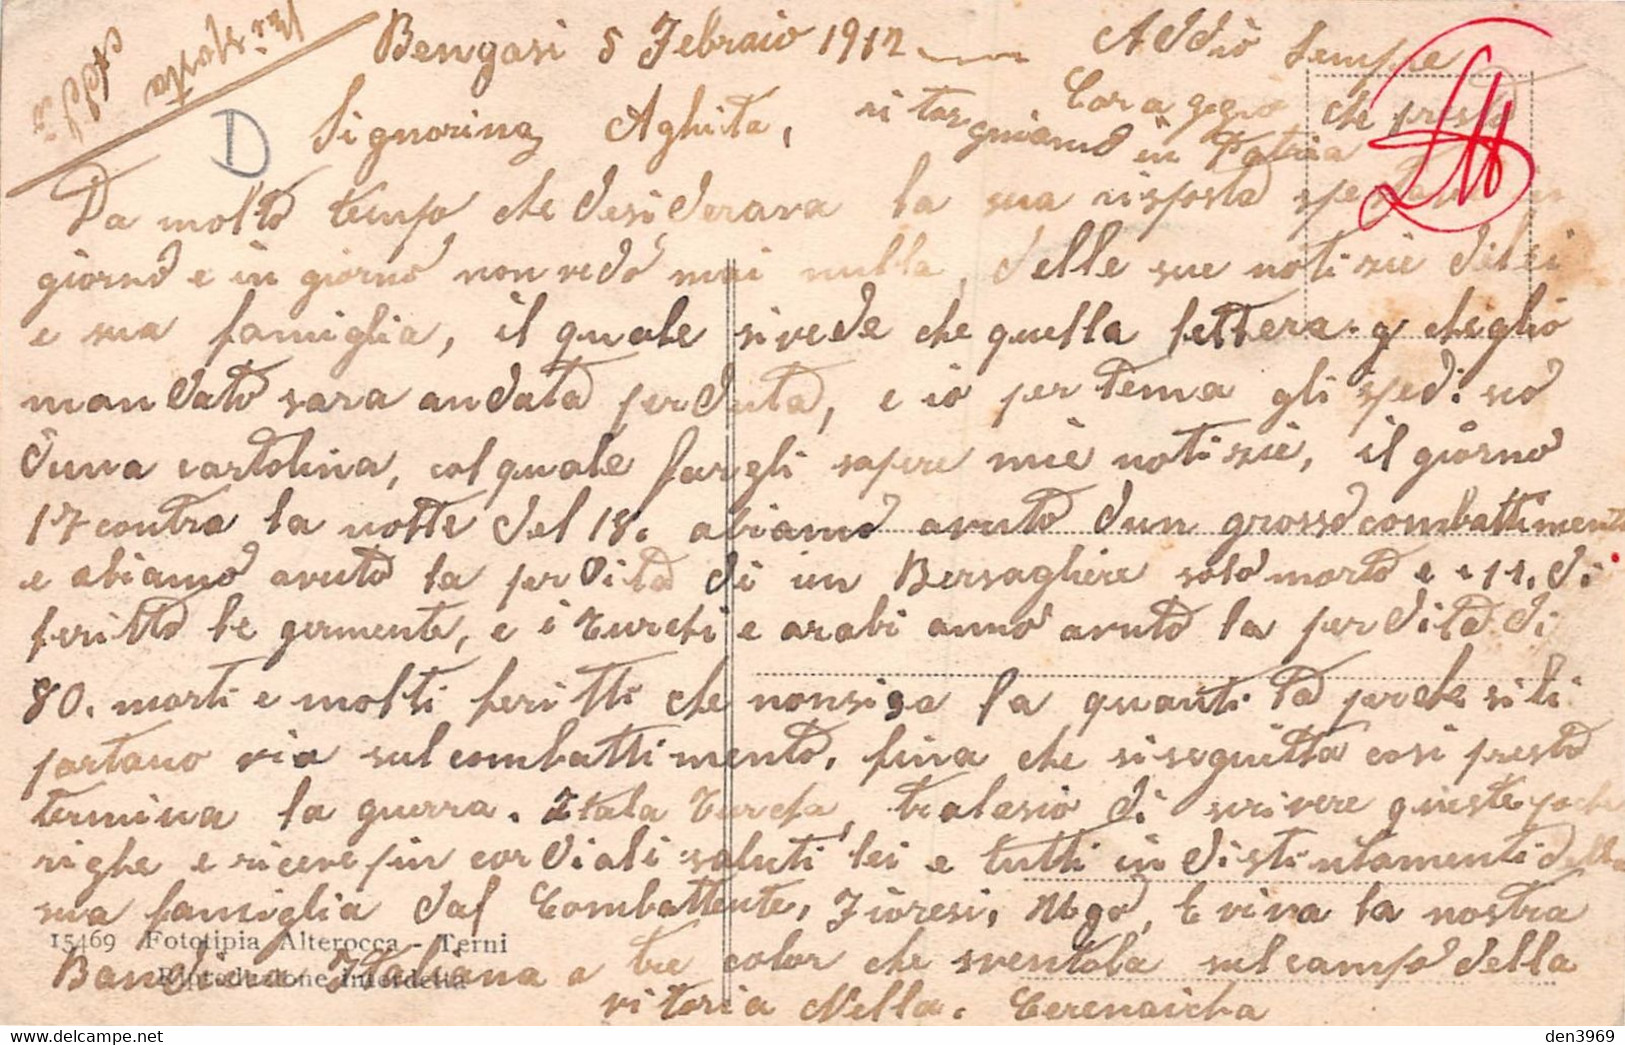 Risposta
Addio
Bengasi 5 Febraio 1912
Addio Sempre
Coraggio che presto
ritorgniamo in Patria
D
Signorina Aghita,
Da molto tempo che desiderava la sua risposta
giorno e in giorno non vedo mai nulla, delle sue notizie di lei
e sua famiglia, il quale si vede che quella lettera. che glio
mandato sara andata perduta, e io per tema gli spedisco
duna cartolina, col quale fargli sapere mie notizie, il giorno
17 contra la notte del 18. abiamo avuto dun grosso combattimento
e abiamo avuto la perdita di un Bersagliere solo morto e 11. di
feritto legermente, e i Turchi e arabi anno avuto la perdita di
80. morti e molti feritti che non si sa la quantita perche si li
portano via sul combattimento. fina che si seguitta cosi presto
termina la guerra. Itala Turcha, tralascio di scrivere queste poche
righe e riceve piu cordiali saluti lei e tutti indistintamenti della
sua famiglia dal Combattente, Fioresi, Ugo, Eviva la nostra
15469 Fototipia Alterocca - Terni
Riproduzione interdetta
Bandiera Italiana a tre color che sventola sul campo della
vitoria Nella. Cerenaicha
den3969